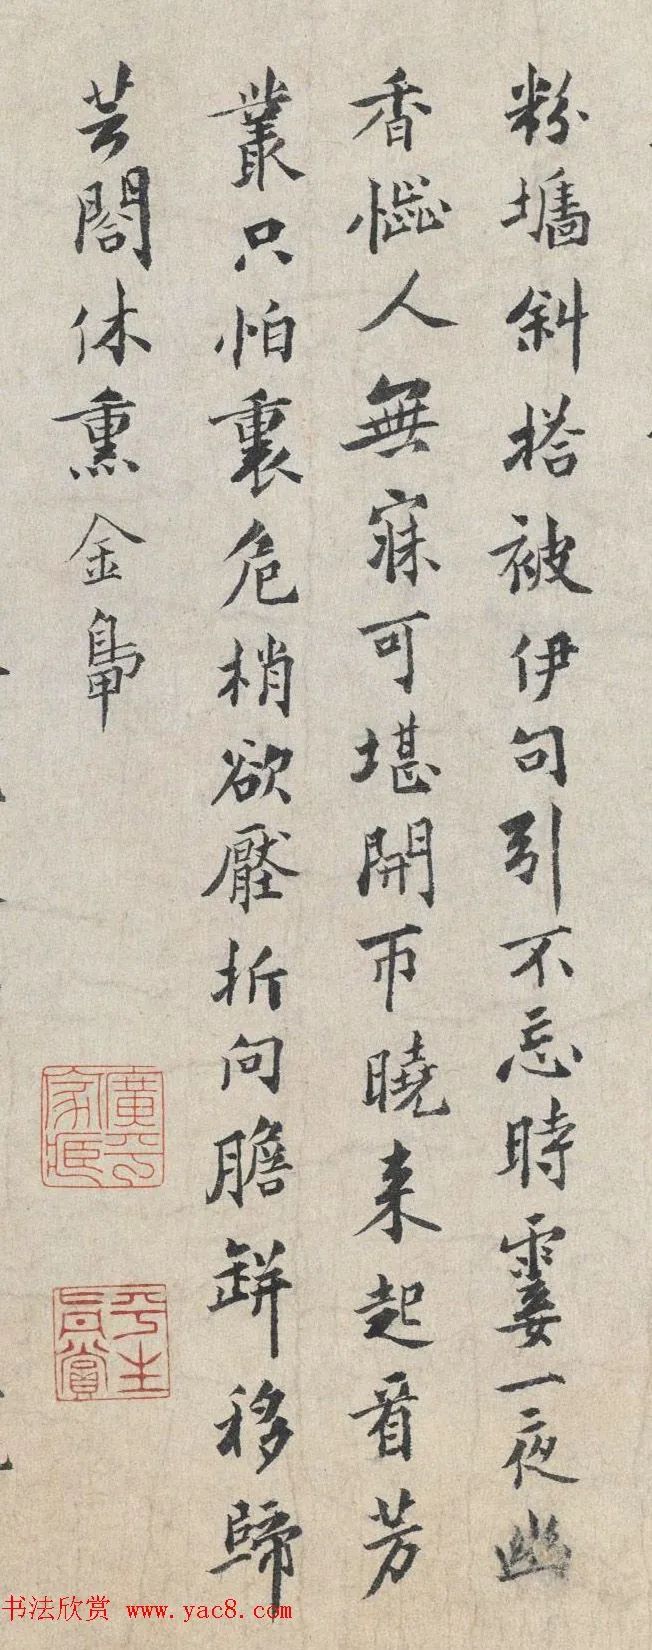 粉墻斜搭被伊句引不忘時霎一夜幽
香惱人無寐可堪開帀曉来起看芳
叢只怕裏危梢欲壓折向膽缾移歸
芸閣休熏金鴨
平生真賞
书法欣赏 www.yac8.com